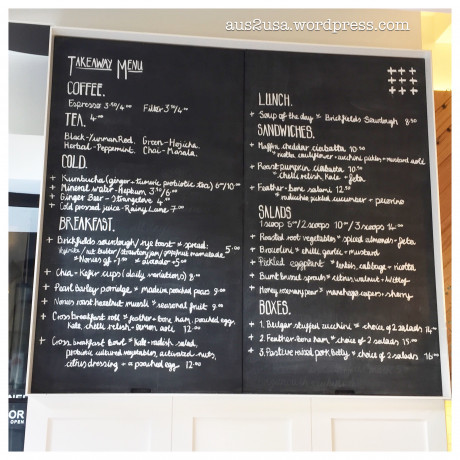 aus2usa.wordpress.com
TAKEAWAY MENU
COFFEE.
Espresso 3.50/4.00 Filter 3.50/4.00
TEA. 4.00
Black-Yunnan Red. Green-Hojicha.
Herbal-Peppermint. Chai-Masala.
COLD.
+ Kumbucha (ginger-tumeric probiotic tea) 6.00/10.00
+ Mineral water-Neptum 3.50/6.00
+ Ginger Beer-Strangelove 4.50
+ Cold pressed juice-Rainy Lane 7.00
BREAKFAST.
+ Brickfields sourdough/rye toast * spread:
Vegemite/nut butter/strawberry jam/grapefruit marmalade 5.00
* Nonies gf +1.00 * avocado +5.00
+ Chia-Kefir cups (daily variations) 8.00
+ Pearl barley porridge * madeira poached pear 9.00
+ Nonies roast hazelnut muesli * seasonal fruit 9.00
+ Cross breakfast roll * feather+bone ham, poached egg,
Kale, chilli relish-lemon aoli 12.00
+ Cross breakfast bowl * Kale-radish salad,
probiotic cultured vegetables, activated-nuts,
citrus dressing + a poached egg 12.00
LUNCH.
+ Soup of the day * Brickfields Sourdough 8.50
SANDWICHES.
+ Maffra cheddar ciabatta 10.50
* cauliflower-zucchini pickle-mustard aoli
+ Roast pumpkin ciabatta 10.50
* chilli relish, Kale + feta
+ Feather+bone salami 12.50
* pickled cucumber-pecorino
SALADS
1 scoop 6.00/2 scoops 10.00/3 scoops 14.00
+ Roasted root vegetables * spiced almonds-feta
+ Broccolini * chilli-garlic-mustard
+ Pickled eggplant * lentils, cabbage-ricotta
+ Burnt brussel sprouts * citrus, walnut-witlof
+ Honey rosemary pear * manchego, capers-sherry
BOXES.
+ 1. Bulgar stuffed zucchini * choice of 2 salads 14.00
+ 2. Feather+bone ham * choice of 2 salads 15.00
+ 3. Pasture raised pork belly * choice of 2 salads 16.00
OR
OPEN